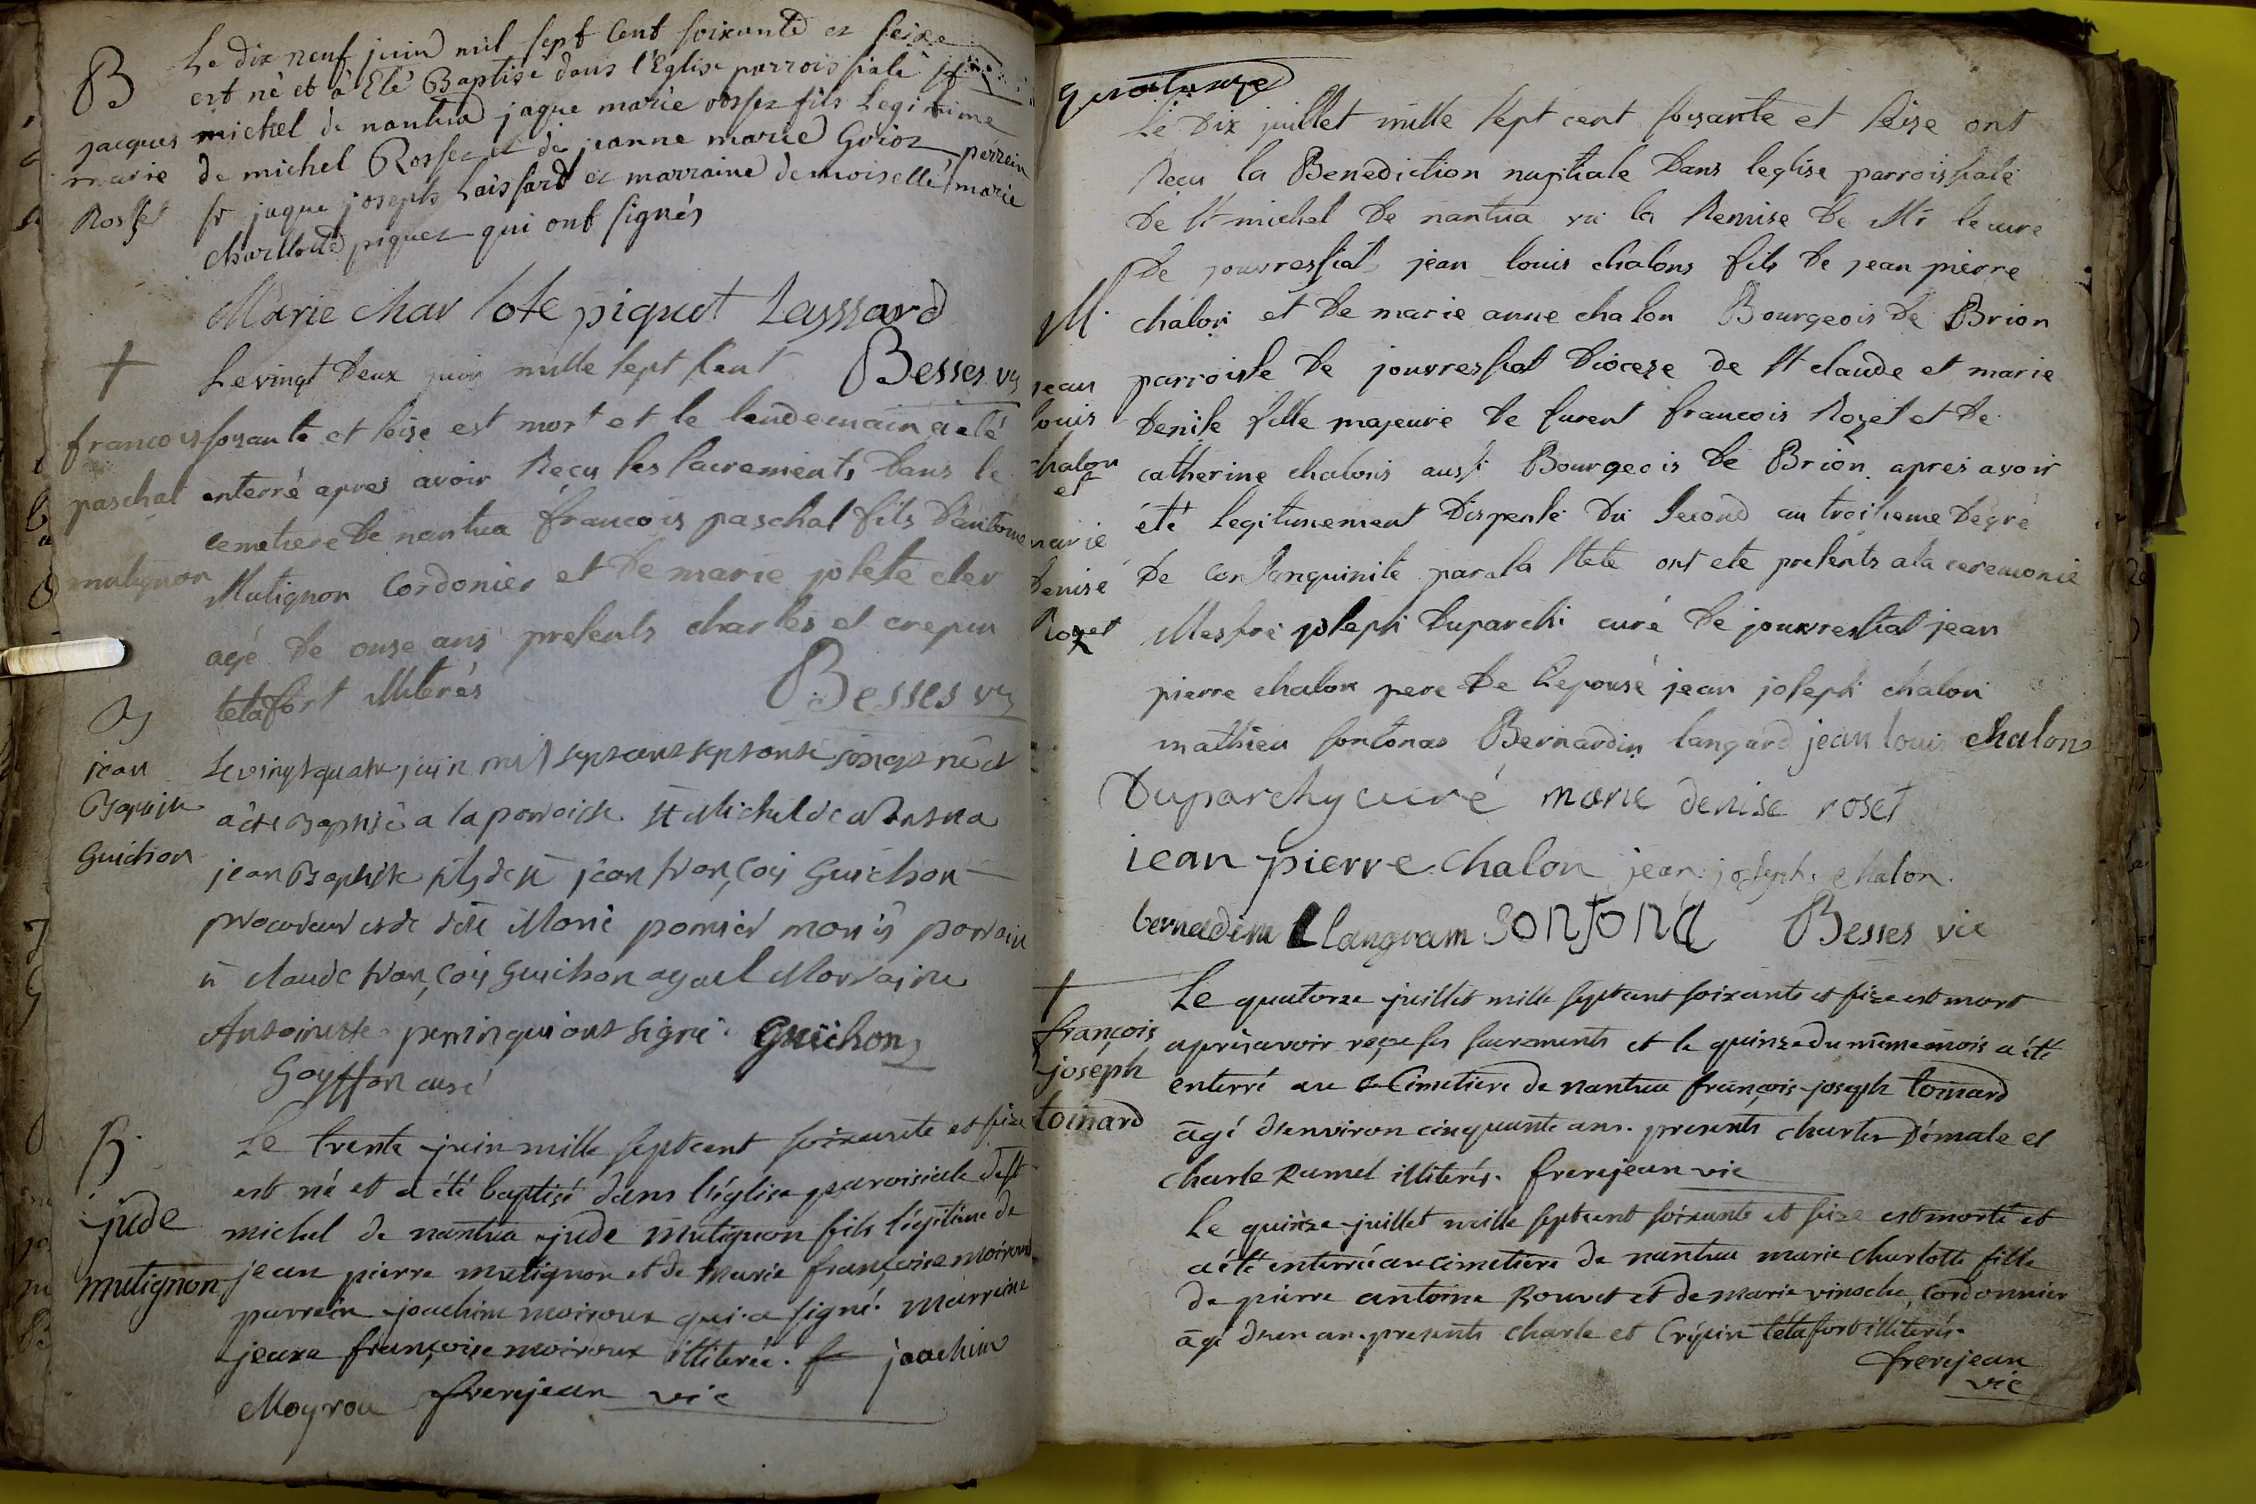 B
jacques
marie
Rosset
Le dix neuf juin mil sept Cent soixante et seize
est né et à Eté Baptisé dans l'Eglise parroissiale st
michel de nantua jaque marie rosset fils Legitime
de michel Rosset et de jeanne marie Goioz parrein
sr jaque joseph Laissard et marraine demoiselle marie
charllotte piquet qui ont signés
Marie char lote piquet Layssard
Besses vic
†
francois
paschal
mutignon
Le vingt deux juin mille sept Cent
soxante et seise est mort et le lendemain a eté
enterré apres avoir Recu les sacrements dans le
cemetiere De nantua francois paschal fils D'antoine
Mutignon Cordonier et De marie josete cler
agé De onse ans presents charles et crepin
tetafort illiterés
Besses vic
B
jean
Baptiste
Guichon
Le vingt quatre juin mil sept cent septante six est né et
a été Baptisé a la parroisse st Michel de Nantua
jean Baptiste fils de sr jean françois Guichon
procureur et de delle Marie pomier mariés parrain
sr claude françois Guichon ayeul Marraine
Antoinette perrin qui ont signé. Guichon
Goyffon curé
B.
jude
mutignon
Le trente juin mille septcent soixante et seize
est né et a été baptisé dans l'église paroisiale de st
michel de nantua jude mutignon fils légitime de
jean pierre mutignon et de marie françoise moiroux
parrein joachim moiroux qui a signé. marreine
jeane françoise moiroux illiterée. joachim
Moyrou frerejean vic
quatorze
M.
jean
louis
chalon
et
marie
Denise
Rozet
Le Dix juillet mille sept cent soisante et seise ont
Recu la Benediction nuptiale Dans leglise parroissiale
De st michel De nantua vu la Remise De Mr le curé
De jouvressiat jean louis chalons fils De jean pierre
chalon et De marie anne chalon Bourgeois De Brion
parroisse De jouvressiat Diocese de st claude et marie
Denise fille majeure De furent francois Rozet et De
catherine chalons aussi Bourgeois De Brion apres avoir
été Legitimement Dispensé Du second au troisieme Degré
De Consanguinité par sa steté ont eté presents a la ceremonie
Messire joseph Duparchi curé De jouvressiat jean
pierre chalon pere De L'epousé jean joseph chalon
mathieu sontonas Bernardin langard jean louis chalons
Duparchy curé marie denise roset
iean pierre chalon jean joseph chalon.
bernadein Llangram sontona Besses vic
†
françois
joseph
toinard
Le quatorze juillet mille septcent soixante et size est mort
après avoir reçu ses sacrements et le quinze du même mois a été
enterré au Cimetiere de nantua françois joseph toinard
âgé d'environ cinquante ans. presents charles Démale et
charle Ramel illiterés. frerejean vic
Le quinze juillet mille septcent soixante et seize est morte et
a été enterrée au cimetiere de nantua marie charlotte fille
de pierre antoine Rouvet et de marie vinoche, Cordonnier
âgé d'un an. presents charle et Crépin tétafort illiterés.
frerejean
vic